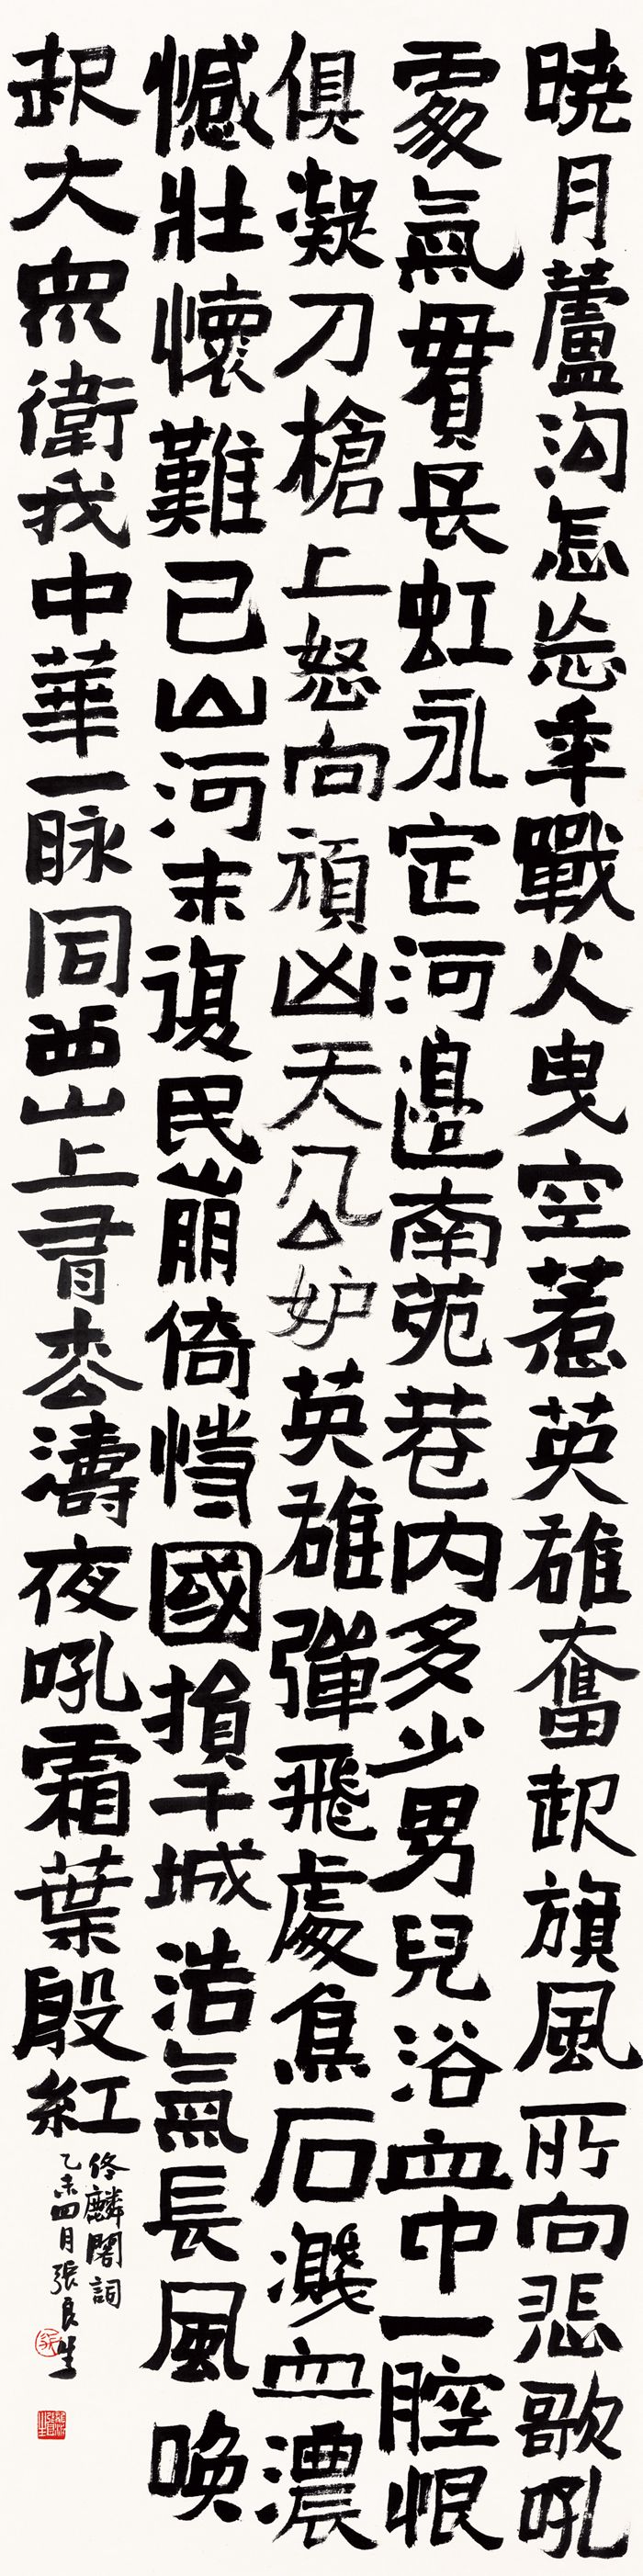 曉月蘆沟怎忘年戰火曳空惹英雄奮起旗風所向悲歌吼
處氣貫長虹永定河邊南苑巷内多少男兒浴血中一腔恨
俱凝刀槍上怒向頑凶天公妒英雄彈飛處焦石濺血濃
憾壯懷難已山河未復民崩倚恃國損干城浩氣長風喚
起大眾衛我中華一脉同西山上看松濤夜吼霜葉殷紅
佟麟閣詞
乙未四月張良生